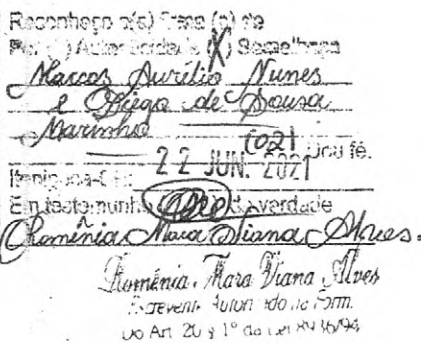 Reconheço a(s) firma (s) de
Por ( ) Autenticidade (X) Semelhança
Marcos Aurélio Nunes
e Diego de Sousa
Marinho
(02) Dou fé.
22 JUN. 2021
Em testemunho da verdade
Romênia Mara Viana Alves.
Romênia Mara Viana Alves
Escrevente Autorizado na Form.
Do Art. 20 § 1º da Lei 8936/94